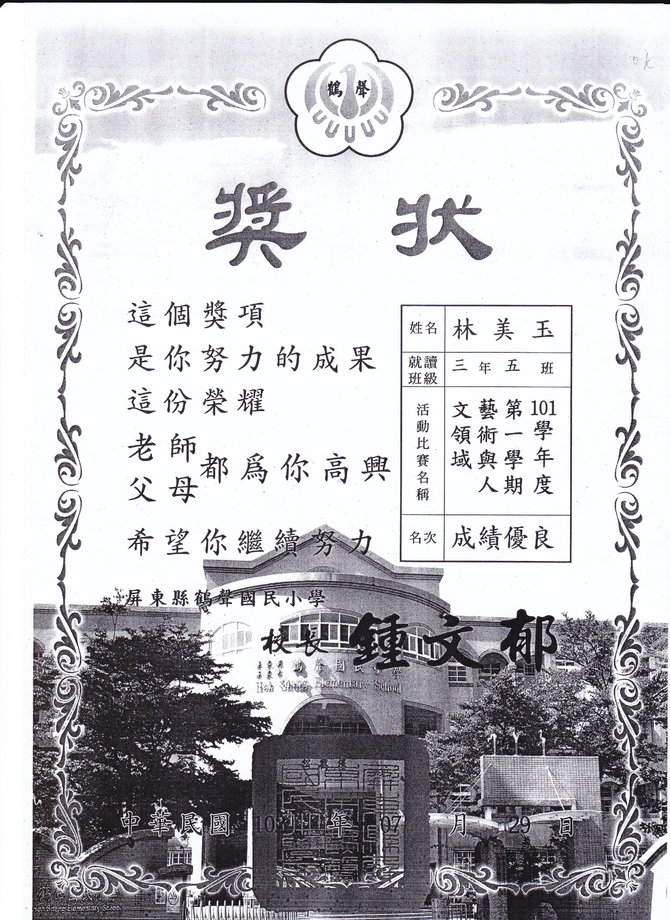 鶴聲
獎狀
這個獎項
是你努力的成果
這份榮耀
老師
父母
都為你高興
希望你繼續努力
姓名 林美玉
就讀班級 三年五班
活動比賽名稱 101學年度第一學期藝術與人文領域
名次 成績優良
屏東縣鶴聲國民小學
校長 鍾文郁
Elementary School
中華民國 年 07 月 29 日